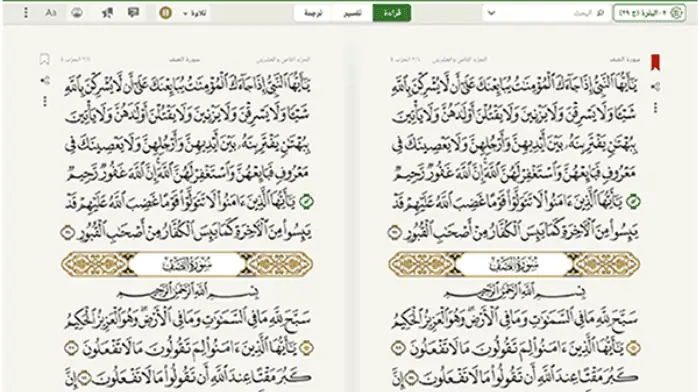 البحث
قراءة
تفسير
ترجمة
تلاوة
Aa
سورة الصف
الجزء الثامن والعشرين
يَٰٓأَيُّهَا ٱلنَّبِيُّ إِذَا جَآءَكَ ٱلْمُؤْمِنَٰتُ يُبَايِعْنَكَ عَلَىٰٓ أَن لَّا يُشْرِكْنَ بِٱللَّهِ
شَيْـًٔا وَلَا يَسْرِقْنَ وَلَا يَزْنِينَ وَلَا يَقْتُلْنَ أَوْلَٰدَهُنَّ وَلَا يَأْتِينَ
بِبُهْتَٰنٍ يَفْتَرِينَهُۥ بَيْنَ أَيْدِيهِنَّ وَأَرْجُلِهِنَّ وَلَا يَعْصِينَكَ فِى
مَعْرُوفٍ فَبَايِعْهُنَّ وَٱسْتَغْفِرْ لَهُنَّ ٱللَّهَ إِنَّ ٱللَّهَ غَفُورٌ رَّحِيمٌ
يَٰٓأَيُّهَا ٱلَّذِينَ ءَامَنُوا۟ لَا تَتَوَلَّوْا۟ قَوْمًا غَضِبَ ٱللَّهُ عَلَيْهِمْ قَدْ
يَئِسُوا۟ مِنَ ٱلْءَاخِرَةِ كَمَا يَئِسَ ٱلْكُفَّارُ مِنْ أَصْحَٰبِ ٱلْقُبُورِ
سُورَةُ الصَّفِّ
بِسْمِ ٱللَّهِ ٱلرَّحْمَٰنِ ٱلرَّحِيمِ
سَبَّحَ لِلَّهِ مَا فِى ٱلسَّمَٰوَٰتِ وَمَا فِى ٱلْأَرْضِ وَهُوَ ٱلْعَزِيزُ ٱلْحَكِيمُ
يَٰٓأَيُّهَا ٱلَّذِينَ ءَامَنُوا۟ لِمَ تَقُولُونَ مَا لَا تَفْعَلُونَ
كَبُرَ مَقْتًا عِندَ ٱللَّهِ أَن تَقُولُوا۟ مَا لَا تَفْعَلُونَ إِنَّ
سورة الصف
الجزء الثامن والعشرين
يَٰٓأَيُّهَا ٱلنَّبِيُّ إِذَا جَآءَكَ ٱلْمُؤْمِنَٰتُ يُبَايِعْنَكَ عَلَىٰٓ أَن لَّا يُشْرِكْنَ بِٱللَّهِ
شَيْـًٔا وَلَا يَسْرِقْنَ وَلَا يَزْنِينَ وَلَا يَقْتُلْنَ أَوْلَٰدَهُنَّ وَلَا يَأْتِينَ
بِبُهْتَٰنٍ يَفْتَرِينَهُۥ بَيْنَ أَيْدِيهِنَّ وَأَرْجُلِهِنَّ وَلَا يَعْصِينَكَ فِى
مَعْرُوفٍ فَبَايِعْهُنَّ وَٱسْتَغْفِرْ لَهُنَّ ٱللَّهَ إِنَّ ٱللَّهَ غَفُورٌ رَّحِيمٌ
يَٰٓأَيُّهَا ٱلَّذِينَ ءَامَنُوا۟ لَا تَتَوَلَّوْا۟ قَوْمًا غَضِبَ ٱللَّهُ عَلَيْهِمْ قَدْ
يَئِسُوا۟ مِنَ ٱلْءَاخِرَةِ كَمَا يَئِسَ ٱلْكُفَّارُ مِنْ أَصْحَٰبِ ٱلْقُبُورِ
سُورَةُ الصَّفِّ
بِسْمِ ٱللَّهِ ٱلرَّحْمَٰنِ ٱلرَّحِيمِ
سَبَّحَ لِلَّهِ مَا فِى ٱلسَّمَٰوَٰتِ وَمَا فِى ٱلْأَرْضِ وَهُوَ ٱلْعَزِيزُ ٱلْحَكِيمُ
يَٰٓأَيُّهَا ٱلَّذِينَ ءَامَنُوا۟ لِمَ تَقُولُونَ مَا لَا تَفْعَلُونَ
كَبُرَ مَقْتًا عِندَ ٱللَّهِ أَن تَقُولُوا۟ مَا لَا تَفْعَلُونَ إِنَّ